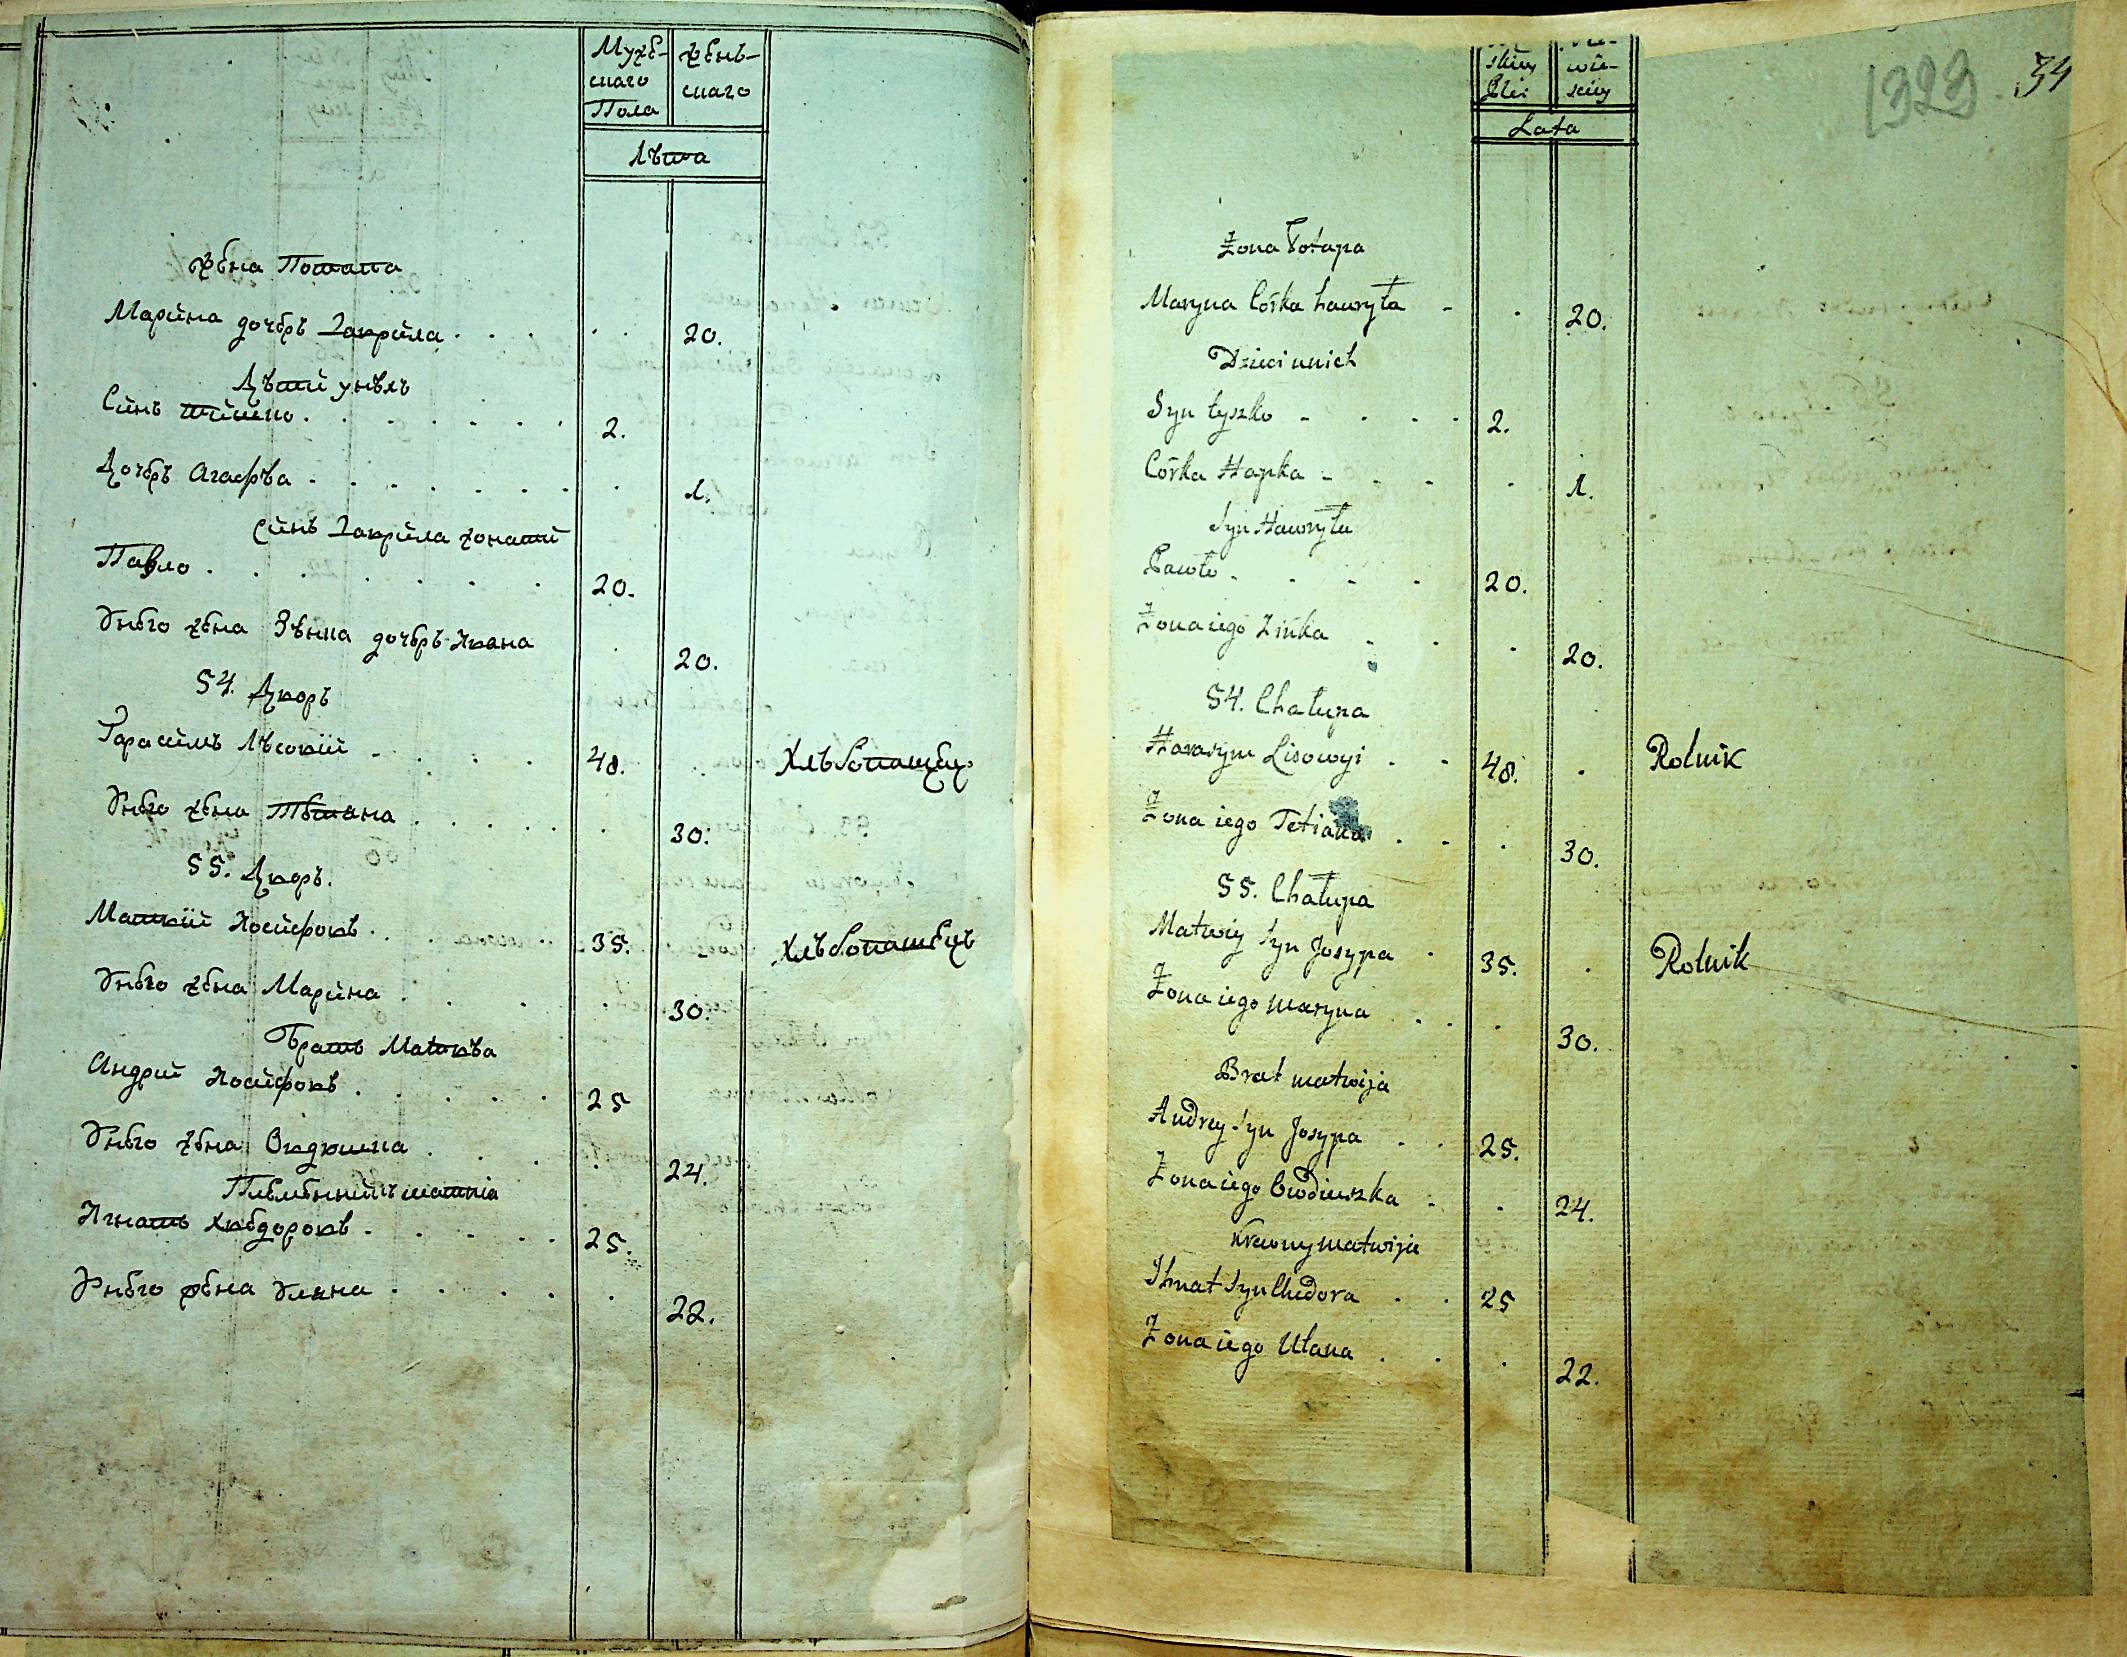 Муже-
скаго
Пола
Жень-
скаго
Лѣта
Жена Потапа
Марина дочерь Гаврила . . . . . 20.
Дѣти у нѣхъ
Синъ Тишко . . . . . . 2.
Дочерь Агафѣа . . . . . . . . 1.
Синъ Гаврила жонатий
Павло . . . . . . . 20.
Унего жена Зѣнка дочерь Ивана . 20.
54. Дворъ
Гарасимъ Лѣсовій . . . . 48. Хлѣбопашецъ
Унего жена Тетяна . . . . . . 30.
55. Дворъ.
Матвій Иосифовъ . . . . 35. Хлѣбопашецъ
Унего жена Марина . . . . 30.
Братъ Матвѣа
Андрий Иосифовъ . . . . . 25
Унего жена Овдюшка . . . . 24.
Племенникъ Матвіа
Игнатъ Хведоровъ . . . . . 25.
Унего жена Уляна . . . . . 22.
1323 34
skiey
Płci
wie-
sciey
Lata
Żona Potapa
Maryna Córka hawryła - . 20.
Dzieci u nich
Syn tyszko - . . . 2.
Córka Hapka - . . . 1.
Syn Hawryła
Pawło - . . . 20.
Żona iego Zińka . . . 20.
54. Chałupa
Harasym Lisowyi . . 48. . Rolnik
Żona iego Tetiana . . . 30.
55. Chałupa
Matwiy Syn Josypa . 35. . Rolnik
Żona iego Maryna . . . 30.
Brat matwija
Andrey Syn Josypa . . 25.
Żona iego Owdiuszka . . 24.
Krewny matwija
Ihnat Syn Chwedora . . 25
Żona iego Ulana . . . 22.